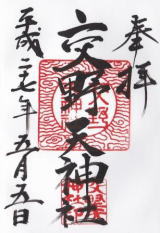 奉拝
交野天神社
平成二七年五月五日